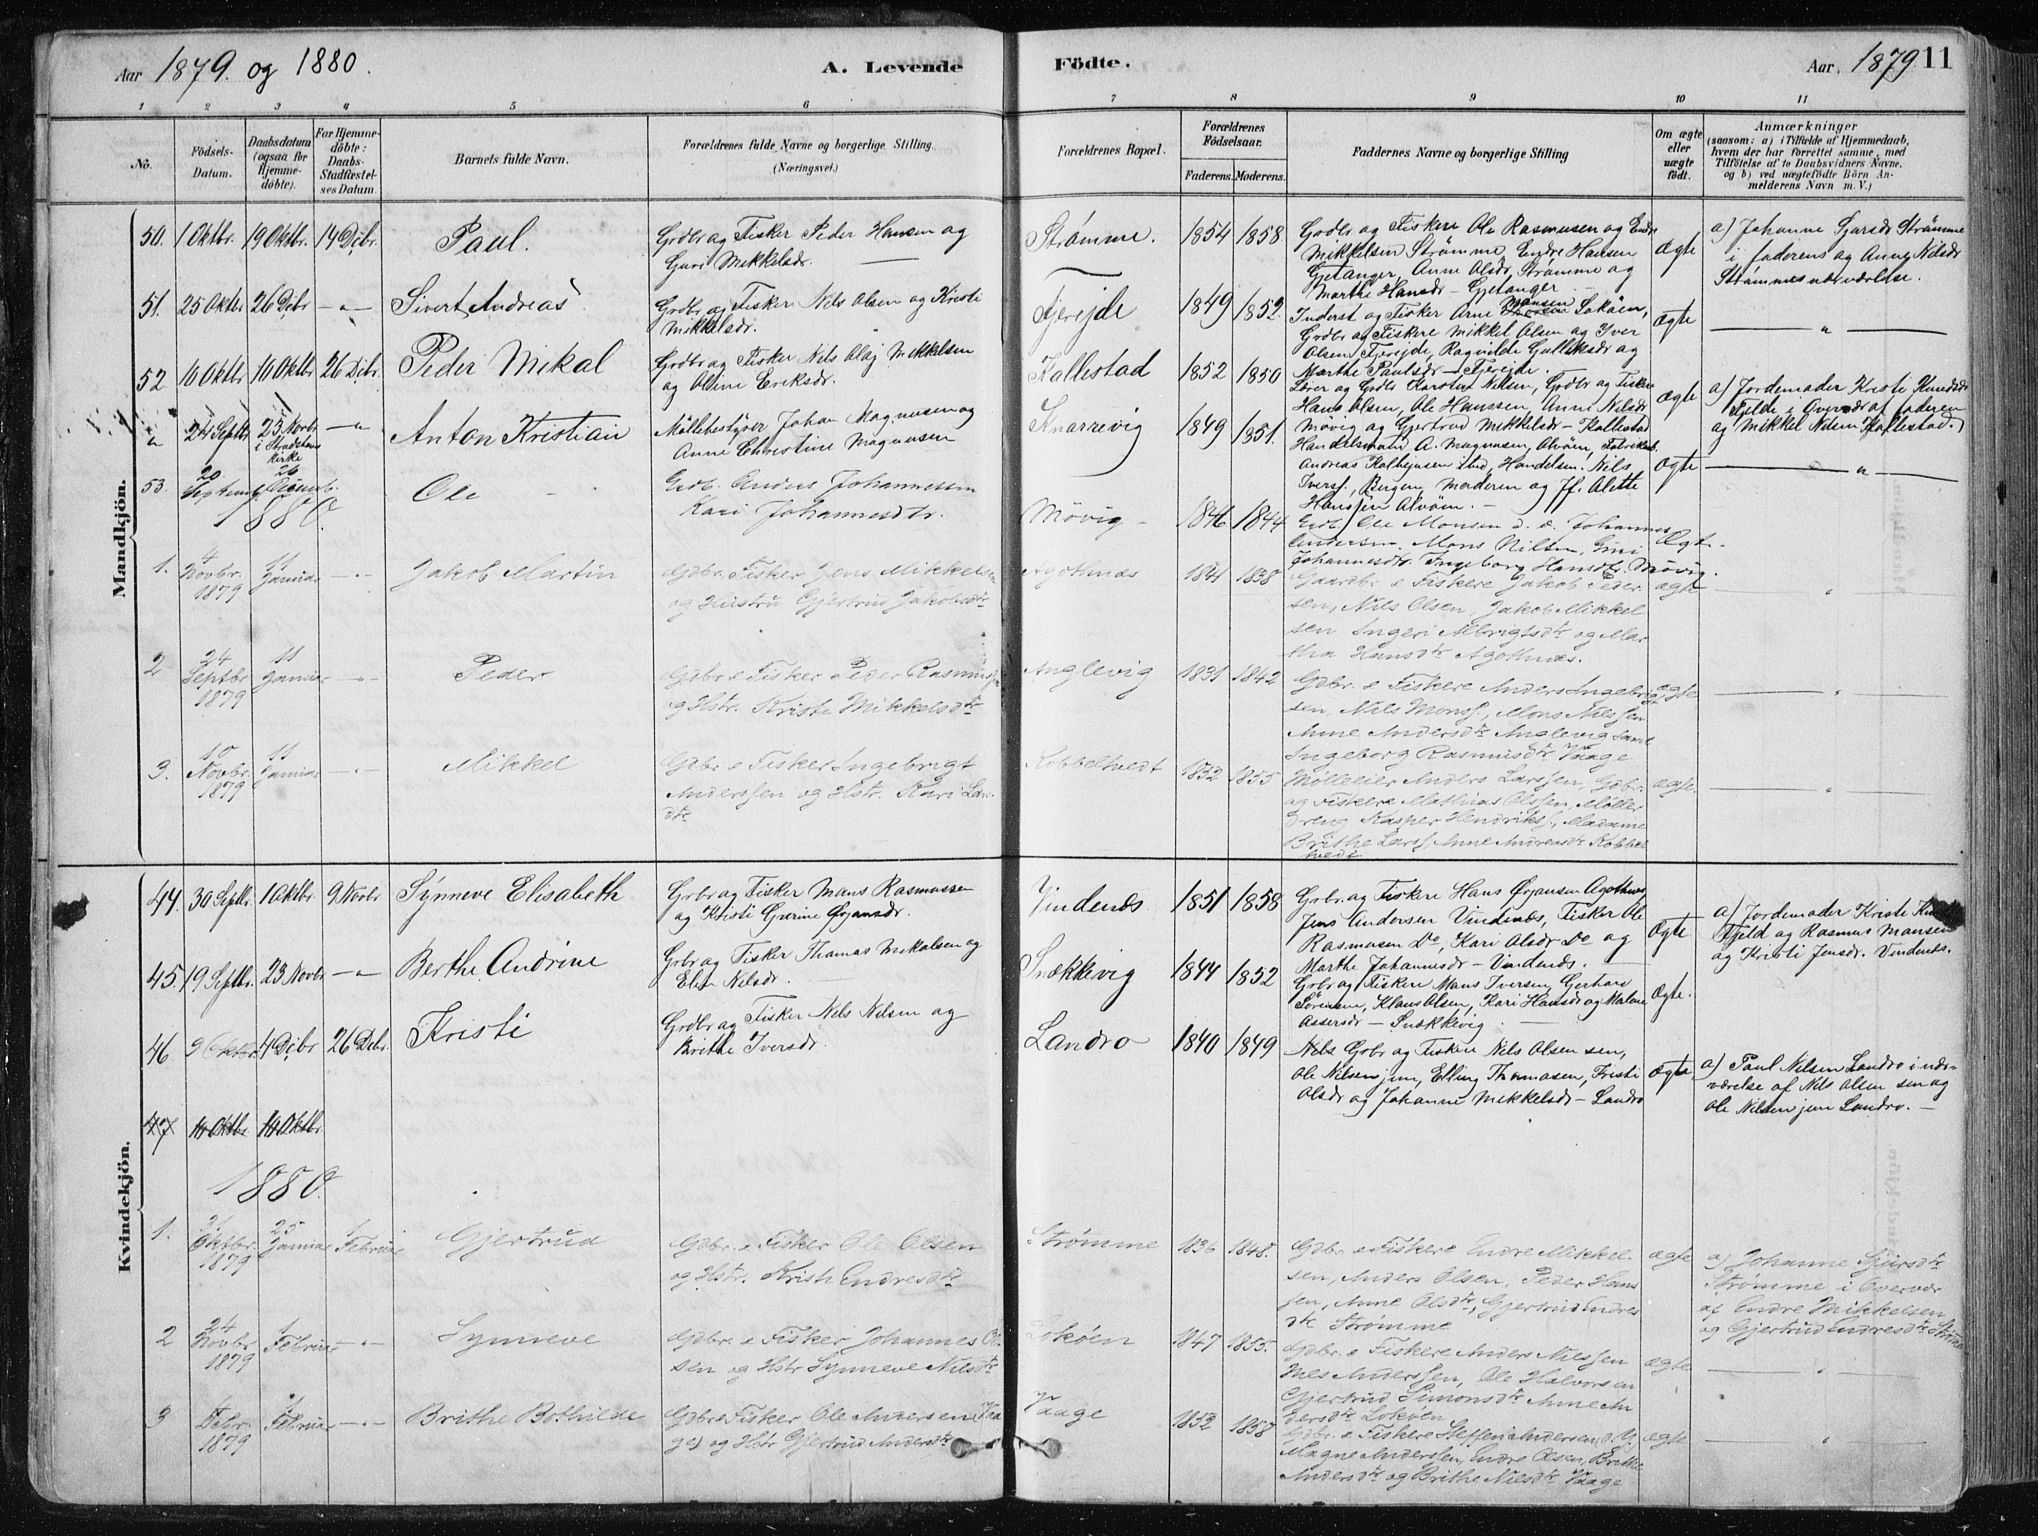 Aar 1879. og 1880.
A. Levende Födte.
Aar. 1879. 11
1 2 3 4 5 6 7 8 9 10 11
No.
Födsels-Datum.
Daabsdatum (ogsaa for Hjemmedöbte).
For Hjemmedöbte: Daabs-Stadfæstelses Datum.
Barnets fulde Navn.
Forældrenes fulde Navne og borgerlige Stilling. (Næringsvei.)
Forældrenes Bopæl.
Forældrenes Födselsaar.
Faderens. Moderens.
Faddernes Navne og borgerlige Stilling
Om ægte eller uægte födt.
Anmærkninger
(saasom: a) i Tilfælde af Hjemmedaab,
hvem der har forrettet samme, med
Tilföielse af to Daabsvidners Navne.
og b) ved uægtefödte Börn An-
melderens Navn m. V.)
Mandkjön.
50. 1 Oktbr. 19 Oktbr. 14 Dcbr. Paul.
Grdbr og Fisker Peder Hansen og
Guri Mikkelsdr.
Strømme. 1854 1858.
Grdbr og Fiskere Ole Rasmusen og Endre
Mikkelsen Strømme, Endre Hansen
Gjetanger, Anne Olsdr Strømme og
Marthe Hansdr – Gjetanger.
Ægte
a) Johanne Sjursdr Strømme
i faderens og Anne Nilsdr
Strømmes nærværelse.
51. 25 Oktbr 26 Dcbr – " – Sivert Andreas
Grdbr og Fisker Nils Olsen og Kristi
Mikkelsdr.
Fjerejde 1849 1852.
Inderst og Fisker Arne Mansen Lokøen,
Grdbr og Fiskere Mikkel Olsen og Yver
Olsen Fjerejde, Ragnilde Gulliksdr og
Marthe Paulsdr – Fjerejde.
Ægte
"
52 10 Oktbr 10 Oktbr 26 Dcbr. Peder Mikal
Grdbr og Fisker Nils Olaj Mikkelsen
og Oline Eriksdr.
Kallestad 1852 1850
Lærer og Grdbr Karsten Nilsen, Grdbr og Fiskere
Hans Olsen, Ole Hanssen, Anne Nilsdr
Møvig og Gjertrud Mikkelsdr – Kallestad
Ægte
a) Jordemoder Kriste Knudsdr
Fjelde i Overvær af faderen
og Mikkel Nilsen Kallestad.
" 24 Septbr 23 Novbr. i Kirke – " Anton Kristian
Møllebestyrer Johan Magnusen og
Anne Christine Magnusen
Knarrevig 1849 1851.
Handelsmand A. Magnusen, Alvøen,
Andreas stud, Handelsm. Nils
Iversf., Bergen, Moderen og Jf. Alette
Hanssen Alvøen. –
Ægte
"
53. 20 Septemb 26 Decemb. Ole
Grdb. Anders Johannessen
Kari Johannesdtr.
Møvig – 1846 1844
Grdb. Ole Monsen d. æ. Johannes
Andersen. Mons Nilsen,
Johannesdtr. Ingeborg Hansdtr. Møvig.
Ægte.
1880.
1. 4 Novbr. 1879 11 Januar – " – Jakob Martin
Gdbr. Fisker Jens Mikkelsen
og Hustru Gjertrud Jakobsdtr
Agothnæs 1841 1838
Gaardbr. & Fiskere Jakob Peder
sen, Nils Olsen, Jakob Mikkel
sen Ingeri Albrigtsdtr og Mar
tha Hansdtr Agothnæs.
ægte
"
2 24 Septbr 1879 11 Januar – " – Peder
Gdbr. & Fisker Peder Rasmussen
og Hstr. Kriste Mikkelsdtr
Anglevig 1831 1842
Gdbr. & Fiskere Anders Ingebrigt
sen, Nils Monsf., Mons Nilssen
Anne Andersdtr Anglevig samt
Ingeborg Rasmusdtr Vaage
ægte
"
3. 10 Novbr. 1879 11 Januar – " – Mikkel
Gdbr. & Fisker Ingebrigt
Anderssen og Hstr. Kari Lars
dtr
Kobbeltvedt 1852 1855
Mølleeier Anders Larssen, Gdbr.
og Fiskere Mathias Olssen, Møller
dreng Kasper Hendriksf., Madame
Brithe Larsf. Anne Andreasdtr Kobbel
tvedt
ægte.
"
Kvindekjön.
44. 30 Septbr. 1 Oktbr. 9 Novbr Synneve Elisabeth
Grbr og Fisker Mans Rasmussen
og Kristi Gjerine Ørjansdr.
Vindenæs 1851 1858
Grbr. og Fiskere Hans Ørjansen Agothnæs
Jens Andersen Vindenæs, Fisker Ole
Rasmusen Do, Kari Olsdr Do og
Marthe Johannesdr – Vindenæs.
Ægte
a) Jordemoder Kriste
Fjeld og Rasmus Mansen
og Kristi Jensdr. Vindenæs.
45. 19 Septbr. 23 Novbr – " Berthe Andrine
Grbr og Fisker Thomas Mikalsen og
Elen Nilsdr.
Snækkevig 1844 1852
Grbr og Fiskere Mans Iversen, Gerhard
Sørensen, Klaus Olsen, Kari Hansdr og Malene
Assersdr – Snækkevig.
Ægte.
46 9 Oktbr 4 Dcbr 26 Dcbr. Kristi
Grdbr og Fisker Nils Nilsen og
Brithe Iversdr.
Landro 1840 1849
Nils Grbr og Fiskere Nils Olsen sen,
Ole Nilsen jun, Elling Thomasen, Kristi
Olsdr og Johanne Mikkelsdr – Landro
Ægte
a) Paul Nilsen Landro i nær-
værelse af Nils Olsen sen og
Ole Nilsen jun Landro. –
47 10 Oktbr 10 Oktbr
1880.
1. 31 Oktbr. 1879 25 Januar 1 Februar Gjertrud
Gdbr. & Fisker Ole Olsen
og Hstr. Kristi Endresdtr
Strømme 1836 1848.
Gdbr. & Fiskere Endre Mikkel
sen, Anders Olsen, Peder Hans
sen, Anne Olsdtr, Gjertrud Endres
dtr Strømme
ægte
a) Johanne Sjursdtr
Strømme i Overvær
af Endre Mikkelsen
og Gjertrud Endresdtr Strømme
2 24 Novbr 1879 1 Februar – " – Synneve
Gdbr. & Fisker Johannes Ol
sen og Hstr Synneve Nilsdtr
Lokøen 1847 1855.
Gdbr. & Fiskere Anders Nilssen
Nils Anderssen, Ole Halvorsen
Gjertrud Simonsdtr Anne An
dersdtr Lokøen
ægte
"
3 1 Debr. 1879 1 Februar – " – Brithe Bothilde
Gdbr & Fisker Ole Andersen (Vaa
ge) og Hstr Gjertrud Andersdtr
Vaage 1852 1858
Gdbr. & Fiskere Steffen Andersen,
Magne Anderssen, Endre Olsen, Brithe
Andersdtr og Brithe Nilsdtr Vaage
ægte
"